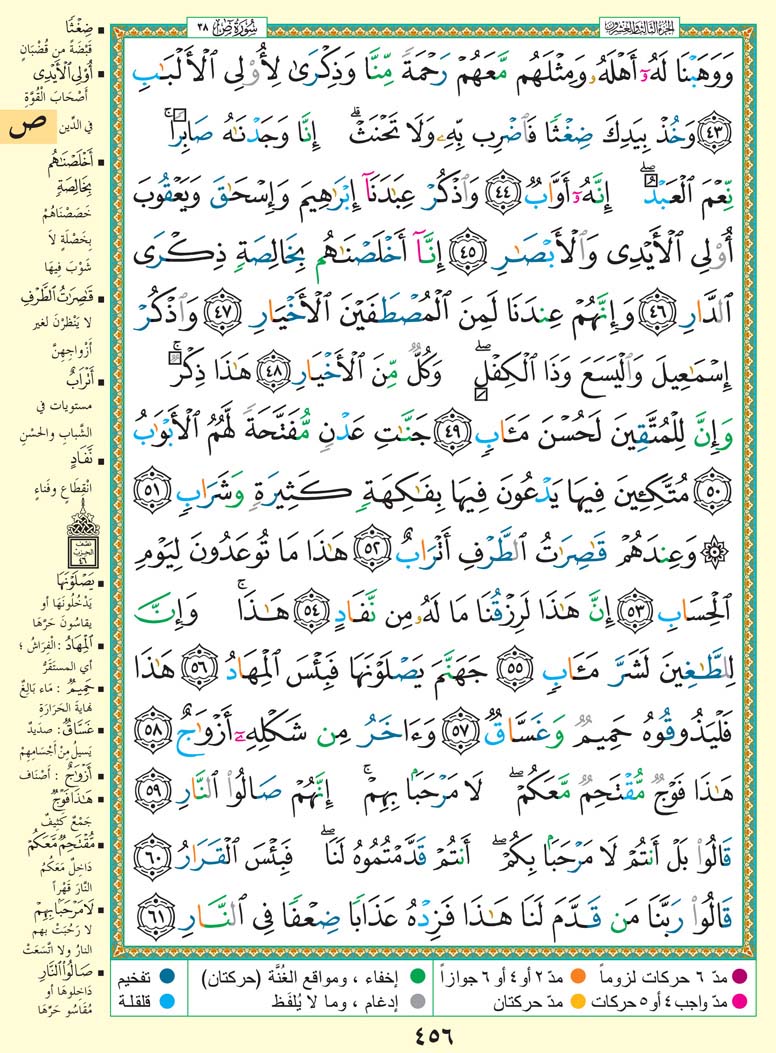 الجزء الثالث والعشرون
سورة ص ٣٨
وَوَهَبْنَا لَهُۥٓ أَهْلَهُۥ وَمِثْلَهُم مَّعَهُمْ رَحْمَةً مِّنَّا وَذِكْرَىٰ لِأُو۟لِى ٱلْأَلْبَـٰبِ
٤٣ وَخُذْ بِيَدِكَ ضِغْثًا فَٱضْرِب بِّهِۦ وَلَا تَحْنَثْ ۗ إِنَّا وَجَدْنَـٰهُ صَابِرًا ۚ
نِّعْمَ ٱلْعَبْدُ ۖ إِنَّهُۥٓ أَوَّابٌ ٤٤ وَٱذْكُرْ عِبَـٰدَنَآ إِبْرَٰهِيمَ وَإِسْحَـٰقَ وَيَعْقُوبَ
أُو۟لِى ٱلْأَيْدِى وَٱلْأَبْصَـٰرِ ٤٥ إِنَّآ أَخْلَصْنَـٰهُم بِخَالِصَةٍ ذِكْرَى
ٱلدَّارِ ٤٦ وَإِنَّهُمْ عِندَنَا لَمِنَ ٱلْمُصْطَفَيْنَ ٱلْأَخْيَارِ ٤٧ وَٱذْكُرْ
إِسْمَـٰعِيلَ وَٱلْيَسَعَ وَذَا ٱلْكِفْلِ ۖ وَكُلٌّ مِّنَ ٱلْأَخْيَارِ ٤٨ هَـٰذَا ذِكْرٌ ۚ
وَإِنَّ لِلْمُتَّقِينَ لَحُسْنَ مَـَٔابٍ ٤٩ جَنَّـٰتِ عَدْنٍ مُّفَتَّحَةً لَّهُمُ ٱلْأَبْوَٰبُ
٥٠ مُتَّكِـِٔينَ فِيهَا يَدْعُونَ فِيهَا بِفَـٰكِهَةٍ كَثِيرَةٍ وَشَرَابٍ ٥١
۞ وَعِندَهُمْ قَـٰصِرَٰتُ ٱلطَّرْفِ أَتْرَابٌ ٥٢ هَـٰذَا مَا تُوعَدُونَ لِيَوْمِ
ٱلْحِسَابِ ٥٣ إِنَّ هَـٰذَا لَرِزْقُنَا مَا لَهُۥ مِن نَّفَادٍ ٥٤ هَـٰذَا ۚ وَإِنَّ
لِلطَّـٰغِينَ لَشَرَّ مَـَٔابٍ ٥٥ جَهَنَّمَ يَصْلَوْنَهَا فَبِئْسَ ٱلْمِهَادُ ٥٦ هَـٰذَا
فَلْيَذُوقُوهُ حَمِيمٌ وَغَسَّاقٌ ٥٧ وَءَاخَرُ مِن شَكْلِهِۦٓ أَزْوَٰجٌ ٥٨
هَـٰذَا فَوْجٌ مُّقْتَحِمٌ مَّعَكُمْ ۖ لَا مَرْحَبًۢا بِهِمْ ۚ إِنَّهُمْ صَالُوا۟ ٱلنَّارِ ٥٩
قَالُوا۟ بَلْ أَنتُمْ لَا مَرْحَبًۢا بِكُمْ ۖ أَنتُمْ قَدَّمْتُمُوهُ لَنَا ۖ فَبِئْسَ ٱلْقَرَارُ ٦٠
قَالُوا۟ رَبَّنَا مَن قَدَّمَ لَنَا هَـٰذَا فَزِدْهُ عَذَابًا ضِعْفًا فِى ٱلنَّارِ ٦١
ضِغْثًا
قَبْضَةً من قُضْبَانٍ
أُو۟لِى ٱلْأَيْدِى
أَصْحَابَ الْقُوَّةِ
في الدِّين
ص
أَخْلَصْنَـٰهُم
بِخَالِصَةٍ
خَصَصْنَاهُمْ
بِخَصْلَةٍ لاَ
شَوْبَ فِيهَا
قَـٰصِرَٰتُ ٱلطَّرْفِ
لا يَنْظُرْنَ لغير
أزْوَاجِهِنَّ
أَتْرَابٌ
مستويات في
الشَّبابِ والحُسْنِ
نَّفَادٍ
انْقِطَاعٍ وفَناءٍ
نصف
الحزب
٤٦
يَصْلَوْنَهَا
يَدْخُلُونَهَا أو
يقاسُونَ حَرَّهَا
ٱلْمِهَادُ : الْفِرَاشُ ؛
أي المستَقَرُّ
حَمِيمٌ : مَاء بَالِغٌ
نهايةَ الْحَرَارَةِ
غَسَّاقٌ : صديدٌ
يَسيلُ مِنْ أجْسَامِهِمْ
أَزْوَٰجٌ : أصْنَاف
هَـٰذَا فَوْجٌ
جَمْعٌ كَثِيفٌ
مُّقْتَحِمٌ مَّعَكُمْ
دَاخِلٌ مَعَكُمُ
النَّارَ قَهْراً
لَا مَرْحَبًۢا بِهِمْ
لا رَحُبَتْ بهم
النارُ ولا اتَّسَعَتْ
صَالُوا۟ ٱلنَّارِ
دَاخِلوهَا أو
مُقَاسُو حَرِّهَا
مدّ ٦ حركات لزوماً
مدّ ٢ أو ٤ أو ٦ جوازاً
إخفاء ، ومواقع الغُنَّة (حركتان)
تفخيم
مدّ واجب ٤ أو ٥ حركات
مدّ حركتان
إدغام ، وما لا يُلفَظ
قلقلة
٤٥٦